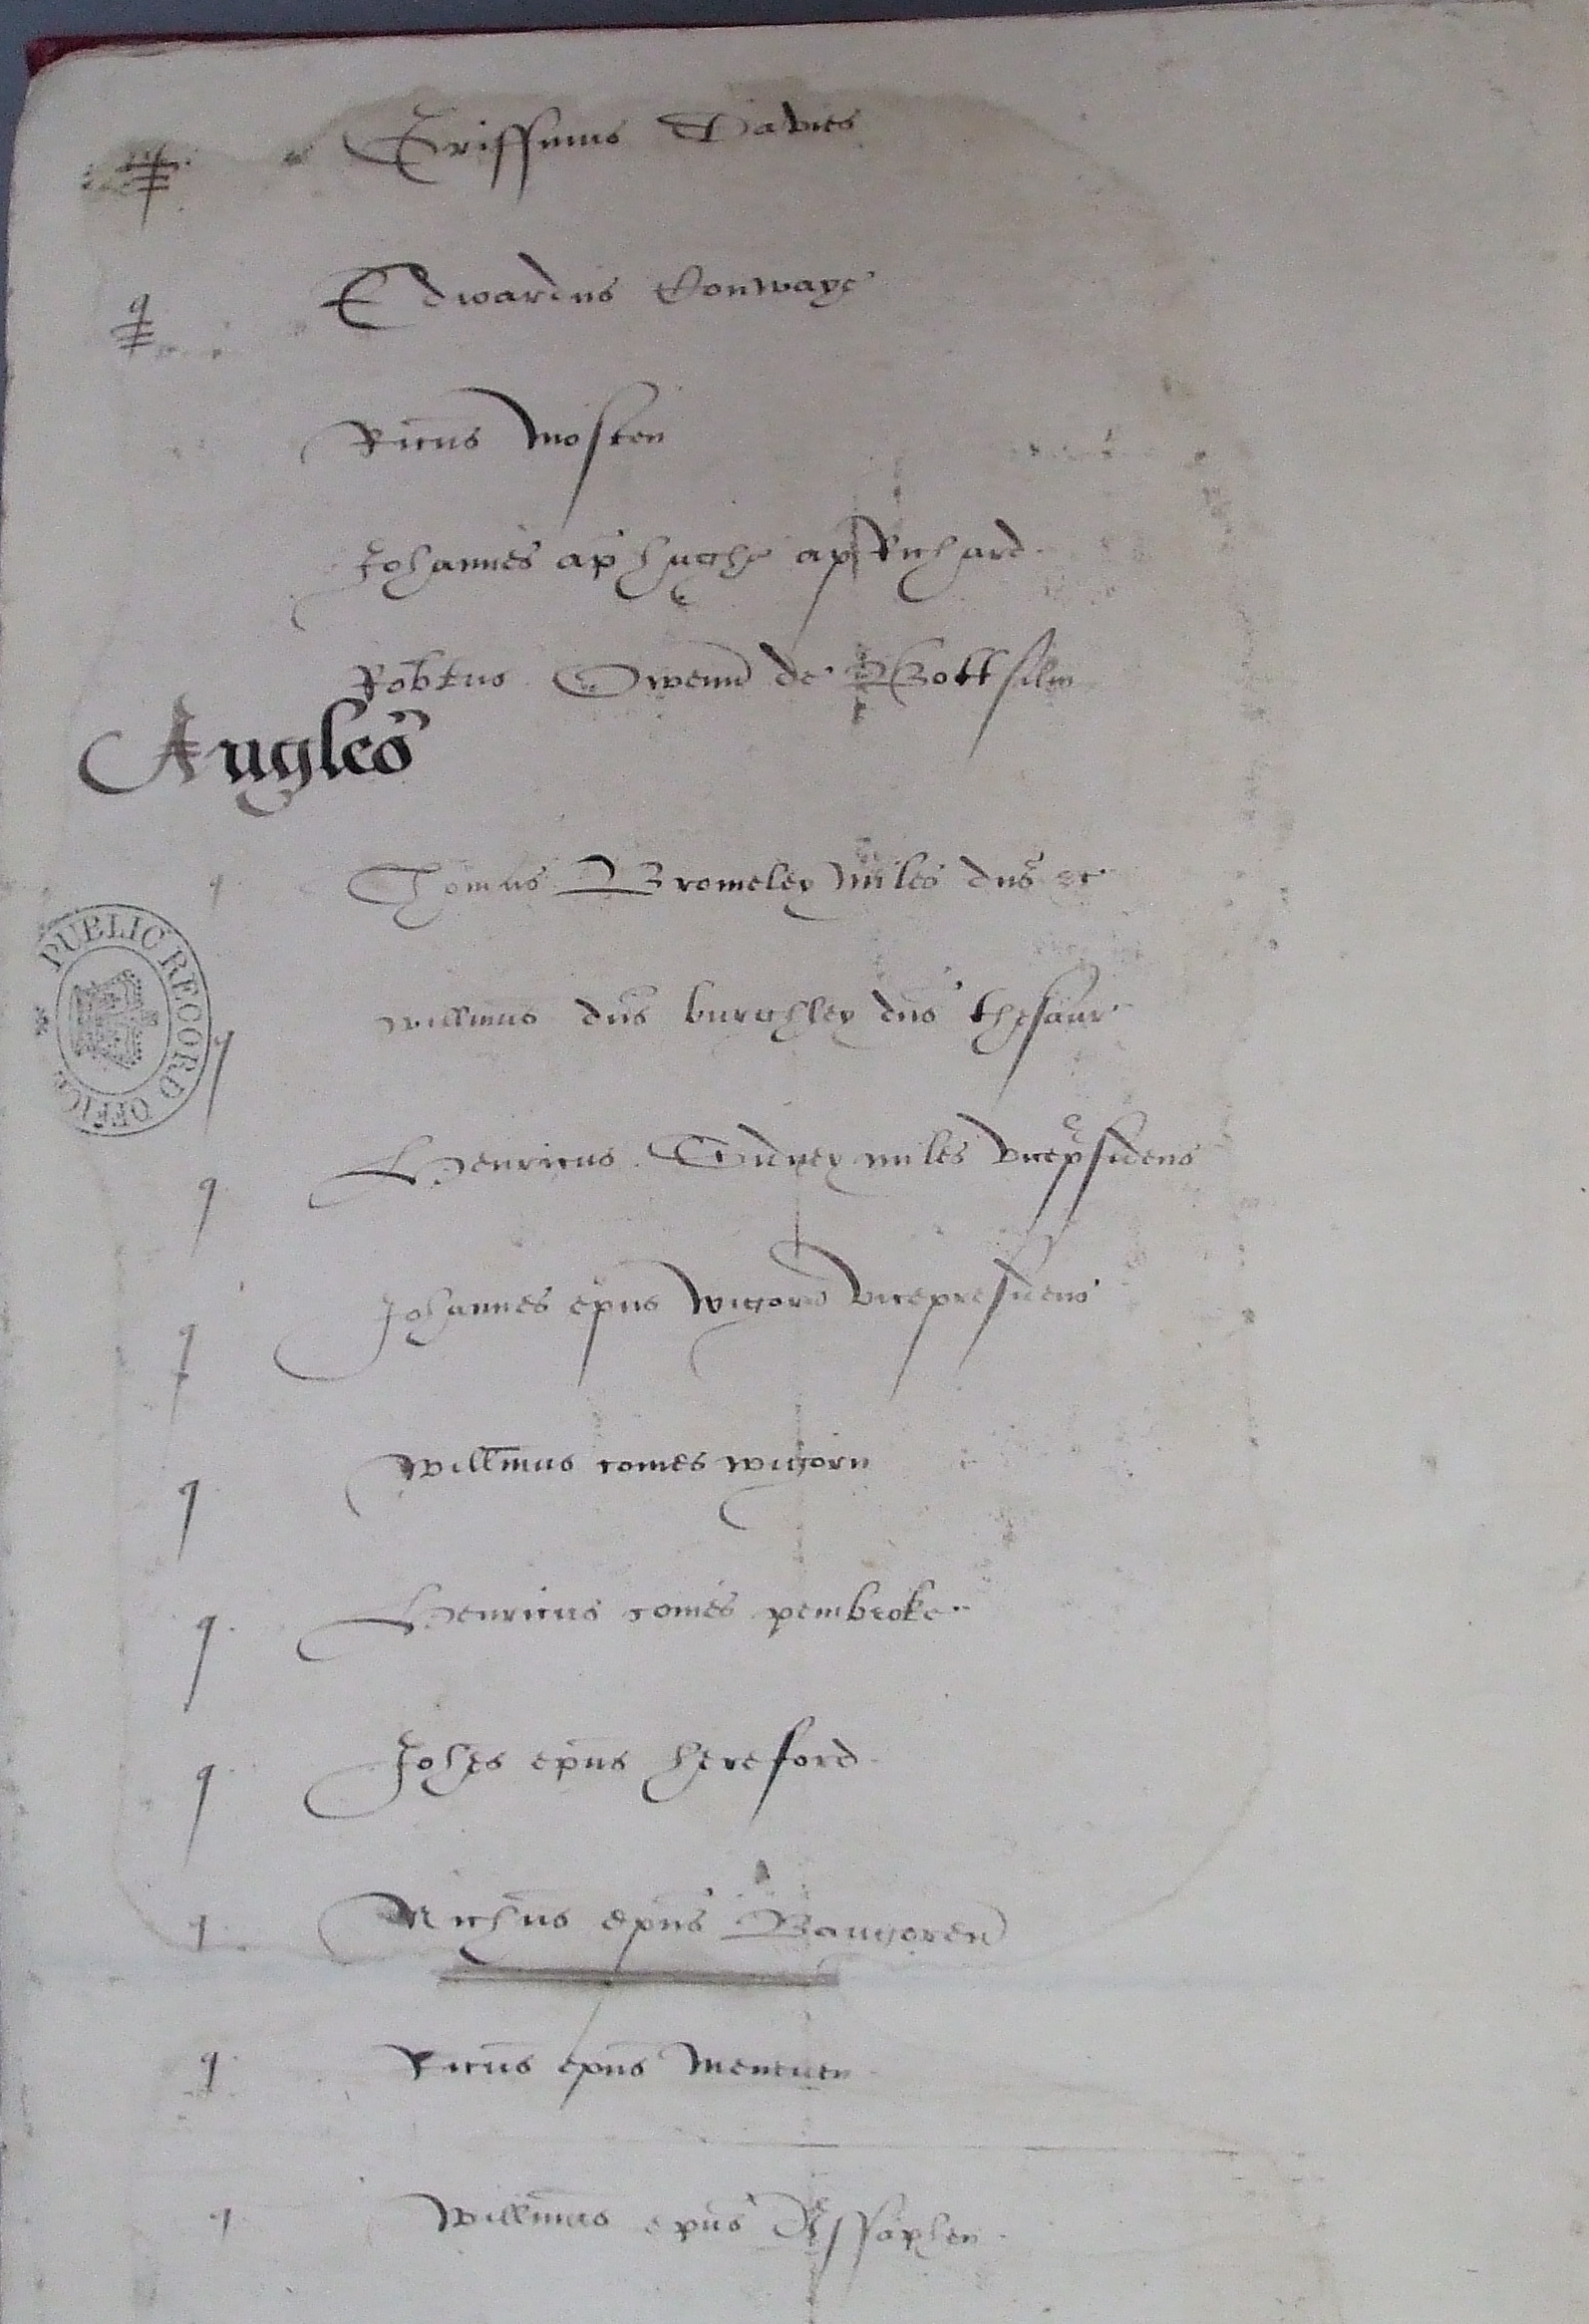 Griffinus Davies
q Edwardus Conwaye
Ricus Mosten
Johannes ap hughe ap Richard
Robtus Owenn de Bottsilin
Angles
q Thomas Bromeley miles dns &c
PUBLIC RECORD OFFICE
q Willmus dns burghley dns thesaur
q Henricus Sidney miles vicepsidens
q Johannes epus wigorn vicepresidens
q Willmus comes wigorn
q Henricus comes pembroke
q Johes epus hereford
q Nichus epus Bangoren
q Ricus epus Meneven
q Willmus epus Assaphen